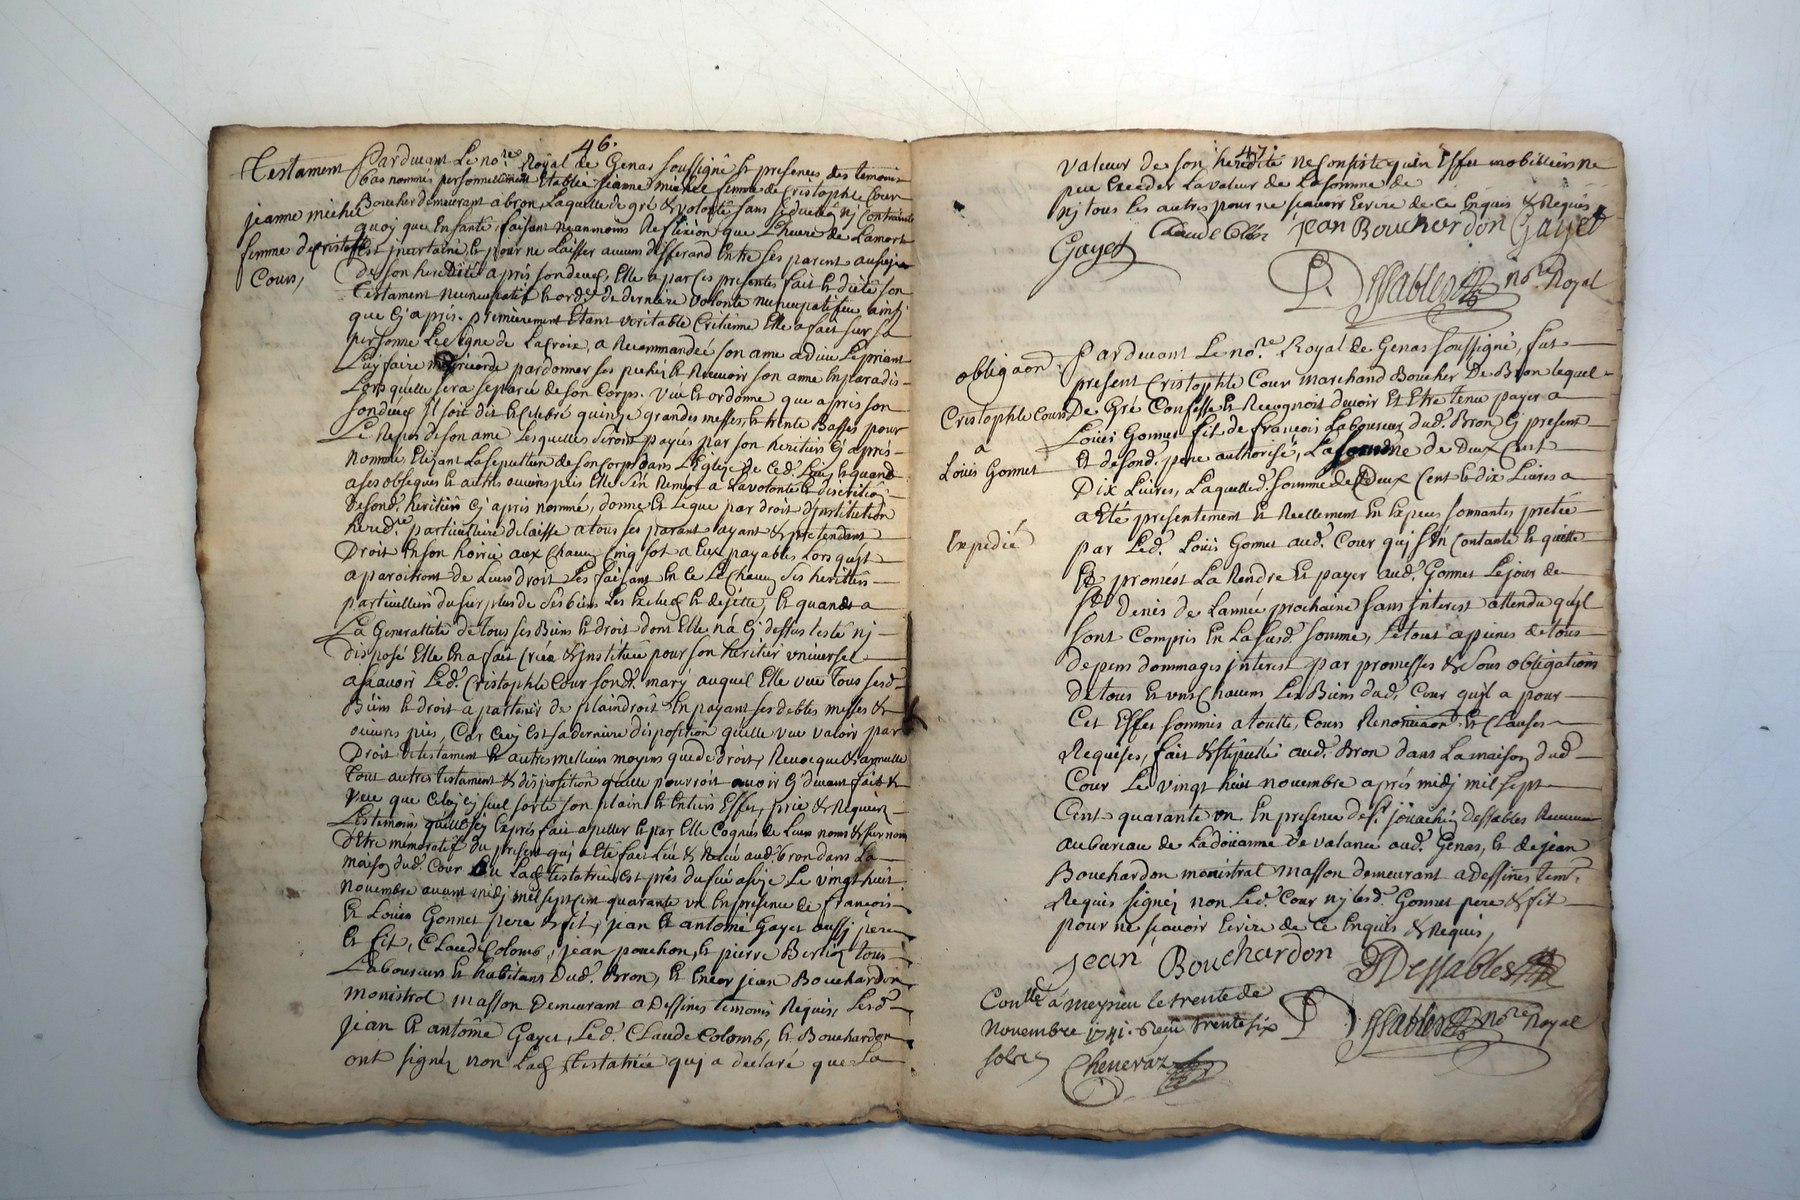 46.
Testament
jeanne michel
femme de cristophle
Cour,
Pardevant Le no.re Royal de Genas soussigné Et presences des temoins
bas nommés personnellement Establie jeanne michel femme de Cristophle Cour
Boucher demeurant a bron, Laquelle de gré & volonté sans séduction nj Contrainte
quoj que En santé faisant neanmoins Reflexion que L'heure de Lamort
Est jncertaine, Et pour ne Laisser aucun differand Entre ses parent ausujet
de son heredité apres son deces, Elle a par ces presentes fait & dicté son
Testament nuncupatif & ord.re de derniere volonté nuncupatifue ainsj
que Cj apres. premierement Etant veritable Critienne Elle a fait sur sa
personne Le signe de Lacroix, a Recommandée son ame a dieu Le priant
Luy faire misericorde pardonner ses pechés & Recevoir son ame En paradis
Lors qu'elle sera separée de son Corps. Veut Et ordonne que apres son
son deces Il soit dit & Celebré quinze grandes messes, & trente Basses pour
Le Repos de son ame Lesquelles seront payées par son heritier Cj apres
nommé, Elizant La sepulture de son Corps dans L'Eglize de Ced. Lieu, Et quand
a ses obseques & autres œuvres pies Elle s'en Remet a La volonté & discrétion
de sond. heritier Cj apres nommé, donne Et Legue par droit d'jnstitution
hered.re particuliere delaisse a tous ses parant ayant & pretendant
Droit En son hoirie aux Chacun Cinq sol a Eux payables Lors qu'jls
aparoitront de Leurs droit Les faisant En Ce Le Chacun ses heritiers
particulliers du surplus de ses biens Les Exclud & dejette, Et quand a
La Generallité de tous ses Biens & droit dont Elle n'a Cj dessus testé nj
disposé Elle En a fait Créé & jnstitué pour son heritier vniversel
a sçavoir Led. Cristophle Cour sond. mary auquel Elle veut Tous sesd.
Biens & droit apartenir de plain droit En payant ses debtes messes &
œuvres pies, Car Cecy est sa derniere disposition qu'elle veut valoir par
Droit de testament & autres meilleurs moyens que de droit, Revoque & annulle
Tout autres testament & disposition qu'elle pourroit avoir Cj devant fait &
Veut que Celuj cj seul sorte son plain & Entiers Effet, prie & Requiert
Les temoins qu'elle Cj Exprès fait apeller & par Elle Cognus de Leurs noms & surnom
D'etre memoratif du present quj a Eté fait Leu & Releu aud. bron dans La
maison dud. Cour où Lad. testatrice Est près du feu assize Le vingt huit
Novembre avant midj mil sept cent quarante vn En presence de francois
Et Louis Gonnet pere & fil, jean & antoine Gayet aussj pere
Et fil, Claude Colomb, jean pouchon, Et pierre Berlioz tous
Laboureurs Et habitans Dud. Bron, Et Encor jean Bouchardon
monistrol masson Demeurant a Dessines temoins Requis, Lesd.
Jean & antoine Gayet, Led. Claude Colomb, & Bouchardon
ont signéz non Lad. Testatrice quj a declaré que La
47.
Valeur de son heredité ne Consiste qu'en Effet mobilliers ne
peu Exceder La valeur de La somme de
nj tous Les autres pour ne sçavoir Ecrire de Ce Enquis & Requis
Claude Colom jean Bouchordon Gayet
Gayet
Dessables no.re Royal
obligaon
Cristophle Cour
a
Louis Gonnet
Expedié
Pardevant Le no.re Royal de Genas soussigné, fut
present Cristophle Cour marchand Boucher De Bron lequel
De Gré Confesse & Recognoit devoir Et Etre Tenu payer a
Louis Gonnet fil de francois Laboureur dud. Bron Cj present
Et de sond. pere authorisé, La somme de Deux Cent
Dix Livres, Laquelled. somme de Deux Cent & dix Livres a
a Eté presentement & Reellement En Especes sonnantes pretée
par Led. Louis Gonnet aud. Cour quj s'en Contante & quitte
Et promést La Rendre Et payer aud. Gonnet Le jour de
st Denis de L'année prochaine sans jnterest attendu qu'jl
sont Compris En La susd. somme, Letout a peines de tous
depens dommages jnterest par promesses & sous obligations
de tous Et vns Chacuns Les Biens dud. Cour qu'jl a pour
Cet Effet sommis a toutte, Cours Renonciaon & Clauses
Requises, fait & stipullé aud. Bron dans La maison dud.
Cour Le vingt huit novembre apres midj mil sept
Cent quarante vn En presence de s.r joüachin dessables Receveur
au bureau de La doüanne De valance aud. Genas, & de jean
Bouchardon monistrol masson demeurant a dessines tem.
Requis signéz non Led. Cour nj lesd. Gonnet pere & fil
pour ne sçavoir Ecrire de Ce Enquis & Requis,
jean Bouchardon Dessables
Dessables no.re Royal
Con.llé a meysieu le trente de
Novembre 1741. Reçu trente six
sols
Cheneraz